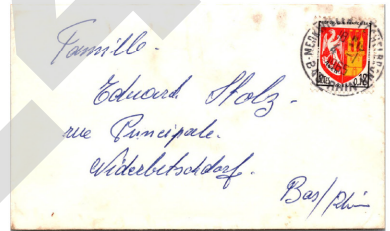 Famille.
Eduard Stolz.
rue Principale.
Niderbetschdorf.
Bas/Rhin